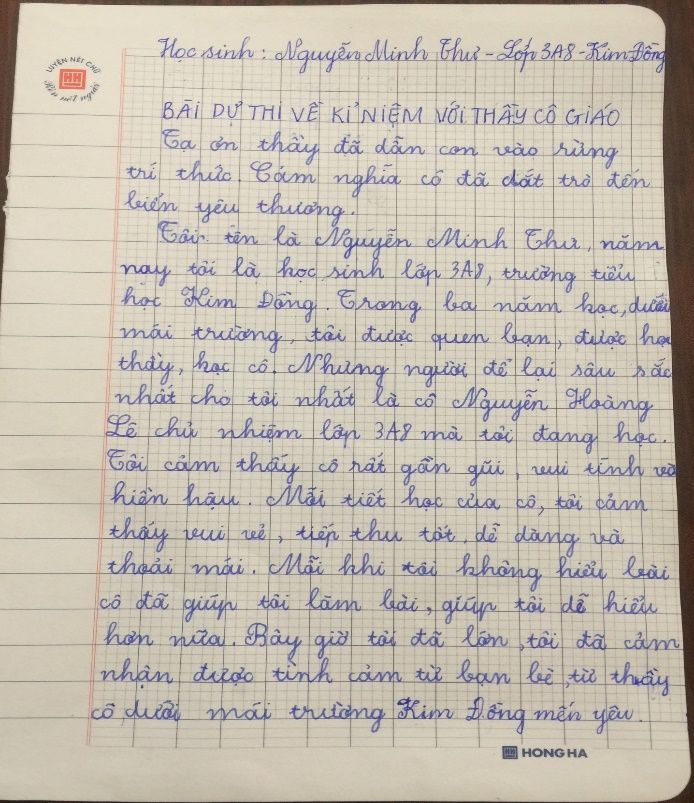 LUYỆN NÉT CHỮ
Rèn nết người
HH
Học sinh: Nguyễn Minh Thư - Lớp 3A8 - Kim Đồng
BÀI DỰ THI VỀ KỈ NIỆM VỚI THẦY CÔ GIÁO
Tạ ơn thầy đã dẫn con vào rừng
trí thức. Cám nghĩa cô đã dắt trò đến
biển yêu thương.
Tôi tên là Nguyễn Minh Thư, năm
nay tôi là học sinh lớp 3A8, trường tiểu
học Kim Đồng. Trong ba năm học, dưới
mái trường, tôi được quen bạn, được học
thầy, học cô. Nhưng người để lại sâu sắc
nhất cho tôi nhất là cô Nguyễn Hoàng
Lê chủ nhiệm lớp 3A8 mà tôi đang học.
Tôi cảm thấy cô rất gần gũi, vui tính và
hiền hậu. Mỗi tiết học của cô, tôi cảm
thấy vui vẻ, tiếp thu tốt, dễ dàng và
thoải mái. Mỗi khi tôi không hiểu bài
cô đã giúp tôi làm bài, giúp tôi dễ hiểu
hơn nữa. Bây giờ tôi đã lớn, tôi đã cảm
nhận được tình cảm từ bạn bè, từ thầy
cô, dưới mái trường Kim Đồng mến yêu.
HH HONG HA